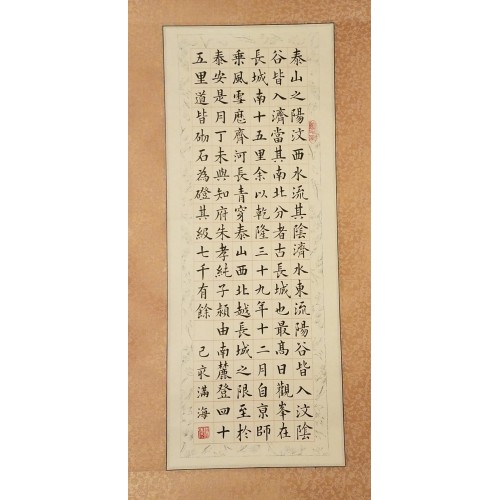 泰山之陽汶西水流其陰濟水東流陽谷皆入汶陰
谷皆入濟當其南北分者古長城也最高日觀峯在
長城南十五里余以乾隆三十九年十二月自京師
乘風雪應齊河長青穿泰山西北越長城之限至於
泰安是月丁未與知府朱孝純子潁由南麓登四十
五里道皆砌石為磴其級七千有餘 己亥滿海